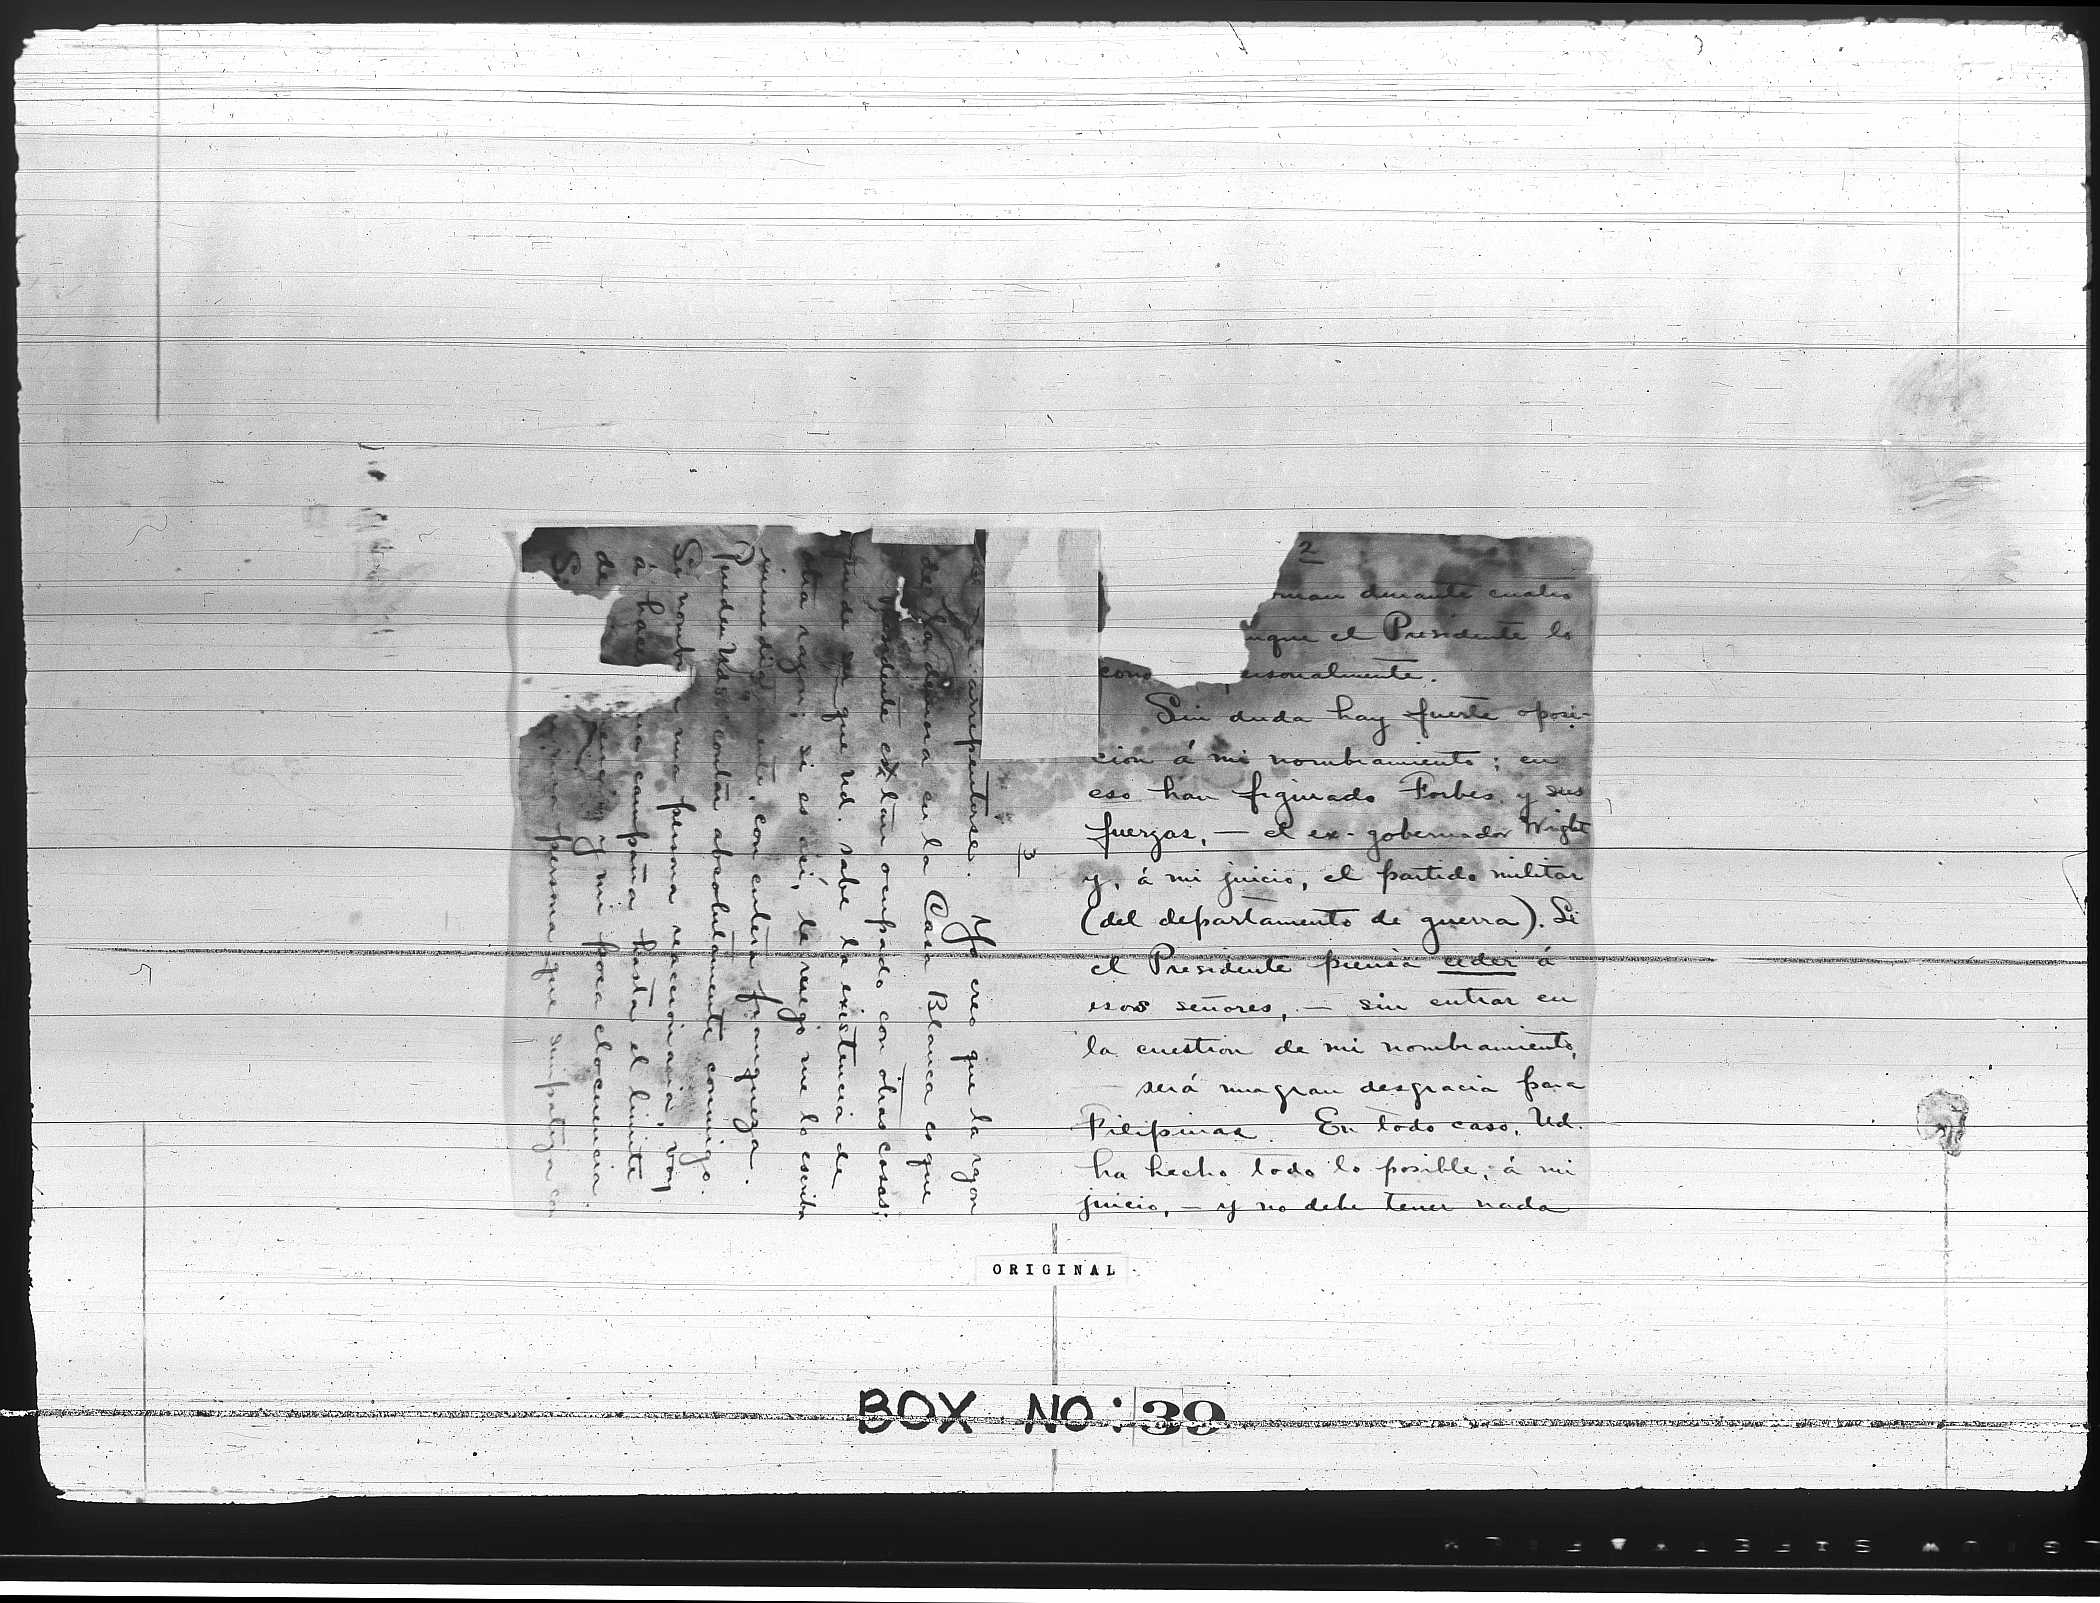 2
man durante cuatro
nque el Presidente lo
cono ersonalmente.
Sin duda hay fuerte oposi-
cion á mi nombramiento; en
eso han figurado Forbes y sus
fuerzas, — el ex-gobernador Wright
y, á mi juicio, el partido militar
(del departamento de guerra). Si
el Presidente piensa ceder á
esos señores, — sin entrar en
la cuestion de mi nombramiento,
— será una gran desgracia para
Filipinas. En todo caso, Ud.
ha hecho todo lo posible, á mi
juicio, — y no debe tener nada
3
arrepentirse. Yo creo que la razon
de la demora en la Casa Blanca es que
sidente es tan ocupado con otras cosas;
duda que Ud. sabe la existencia de
otra razon; si es asi, le ruego me lo escriba
inmediatamente, con entera franqueza.
Pueden Uds. contar absolutamente conmigo.
Si nombra á una persona reaccionaria, voy
á hacer una campaña hasta el limite
de y mi poca elocuencia.
Si una persona que simpatiza con
ORIGINAL
BOX NO: 39